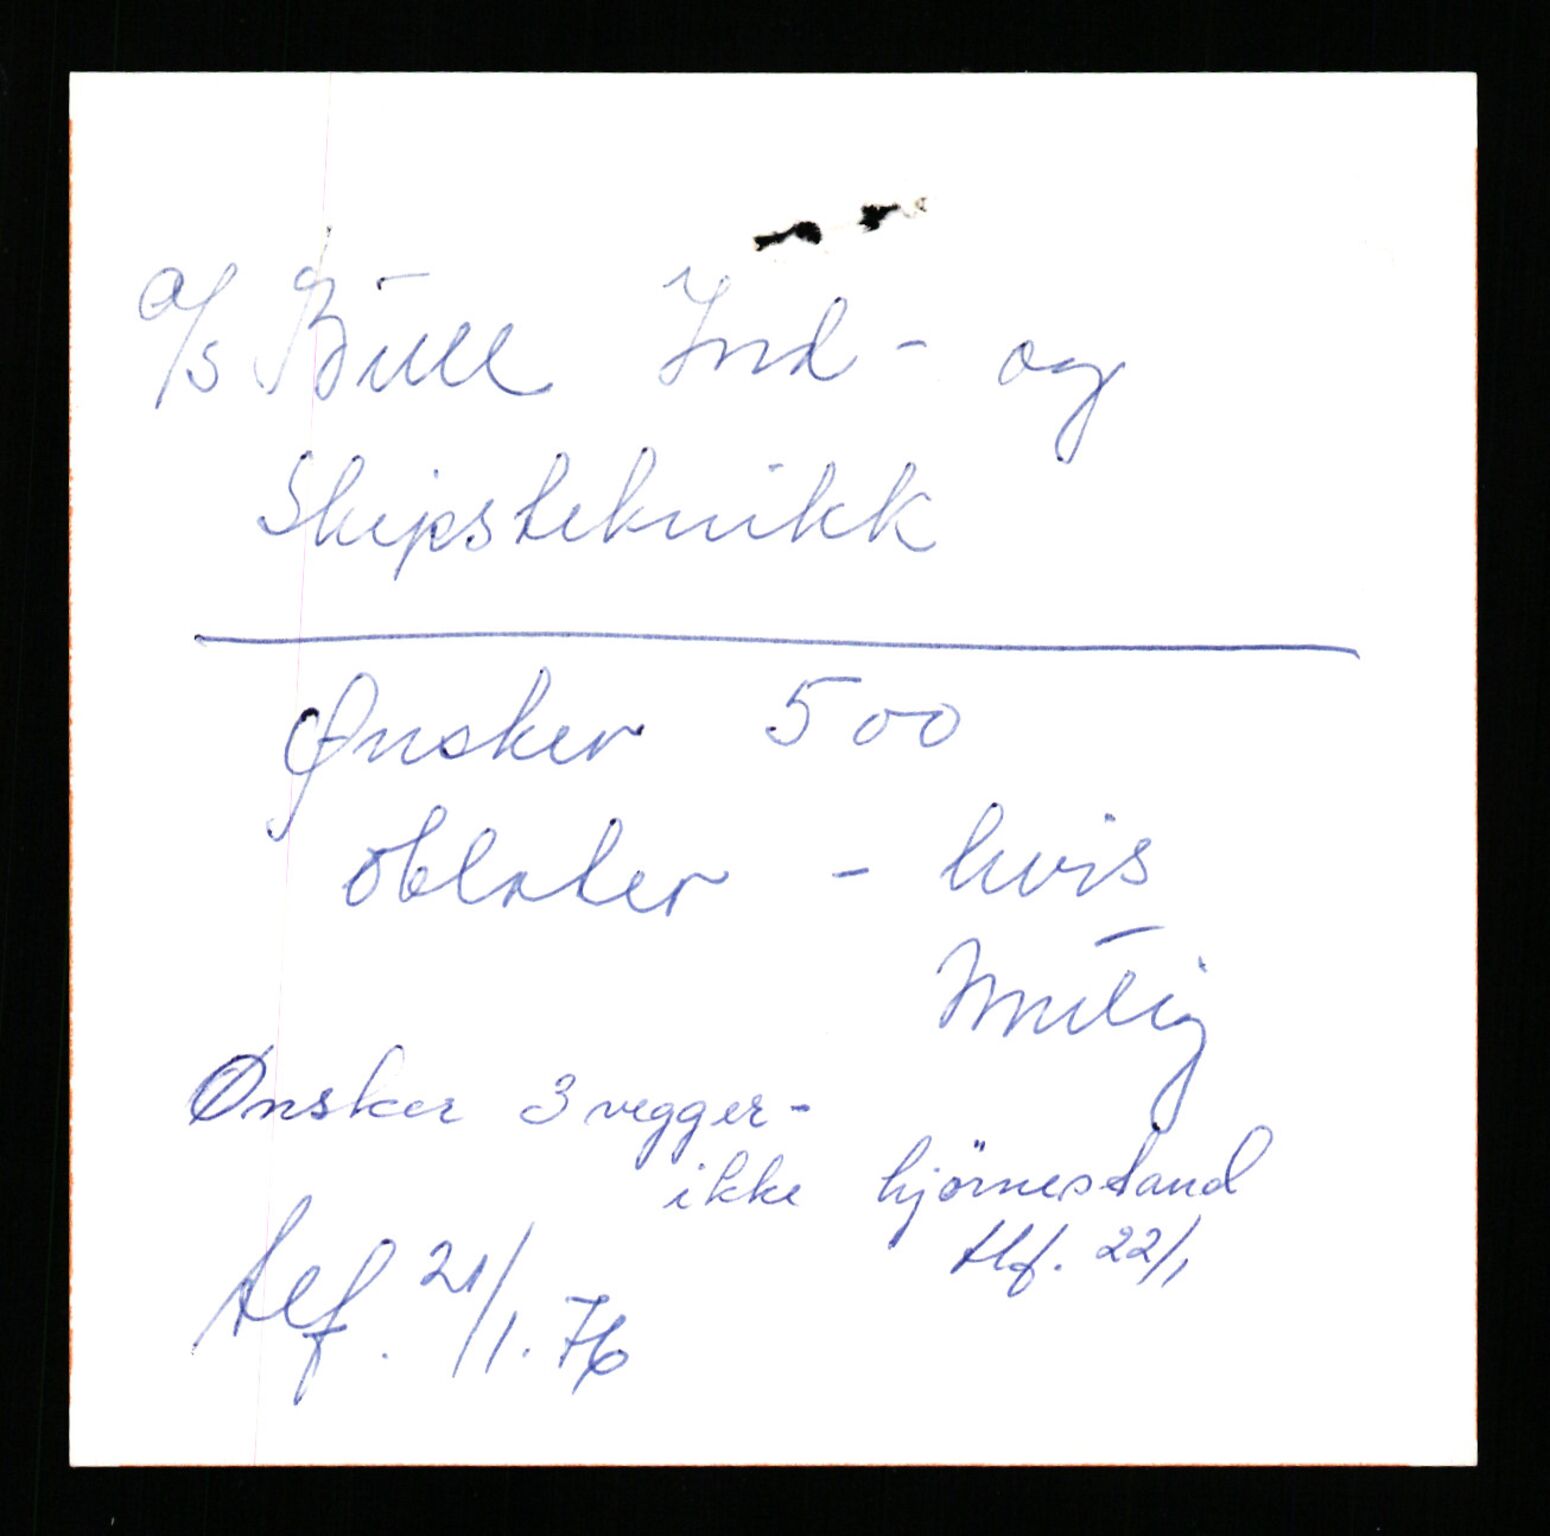 A/S Bull Ind - og
Skipsteknikk
Ønsker 500
oblater - hvis
mulig
Ønsker 3 vegger -
ikke hjörnestand
tlf. 22/1
tlf. 21/1. 76